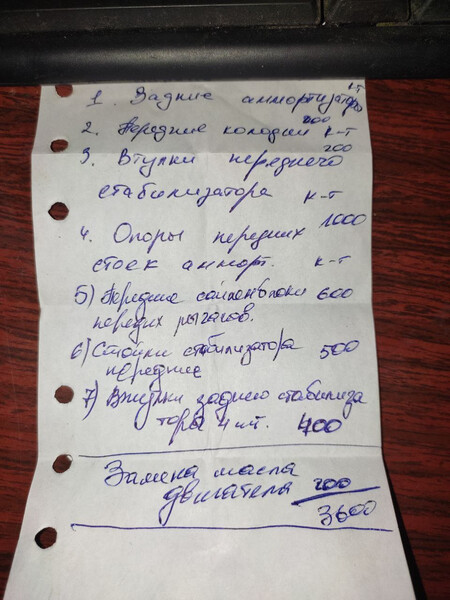 1. Задние аммортизаторы к-т
2. Передние колодки к-т 200
3. Втулки переднего 200
стабилизатора к-т
4. Опоры передних 1000
стоек аморт. к-т
5) Передние сайленблоки 600
передих рычагов.
6) Стойки стабилизатора 500
передние
7) Втулки заднего стабилиза
торы 4 шт. 400
Замена масла
двигателя 200
3600